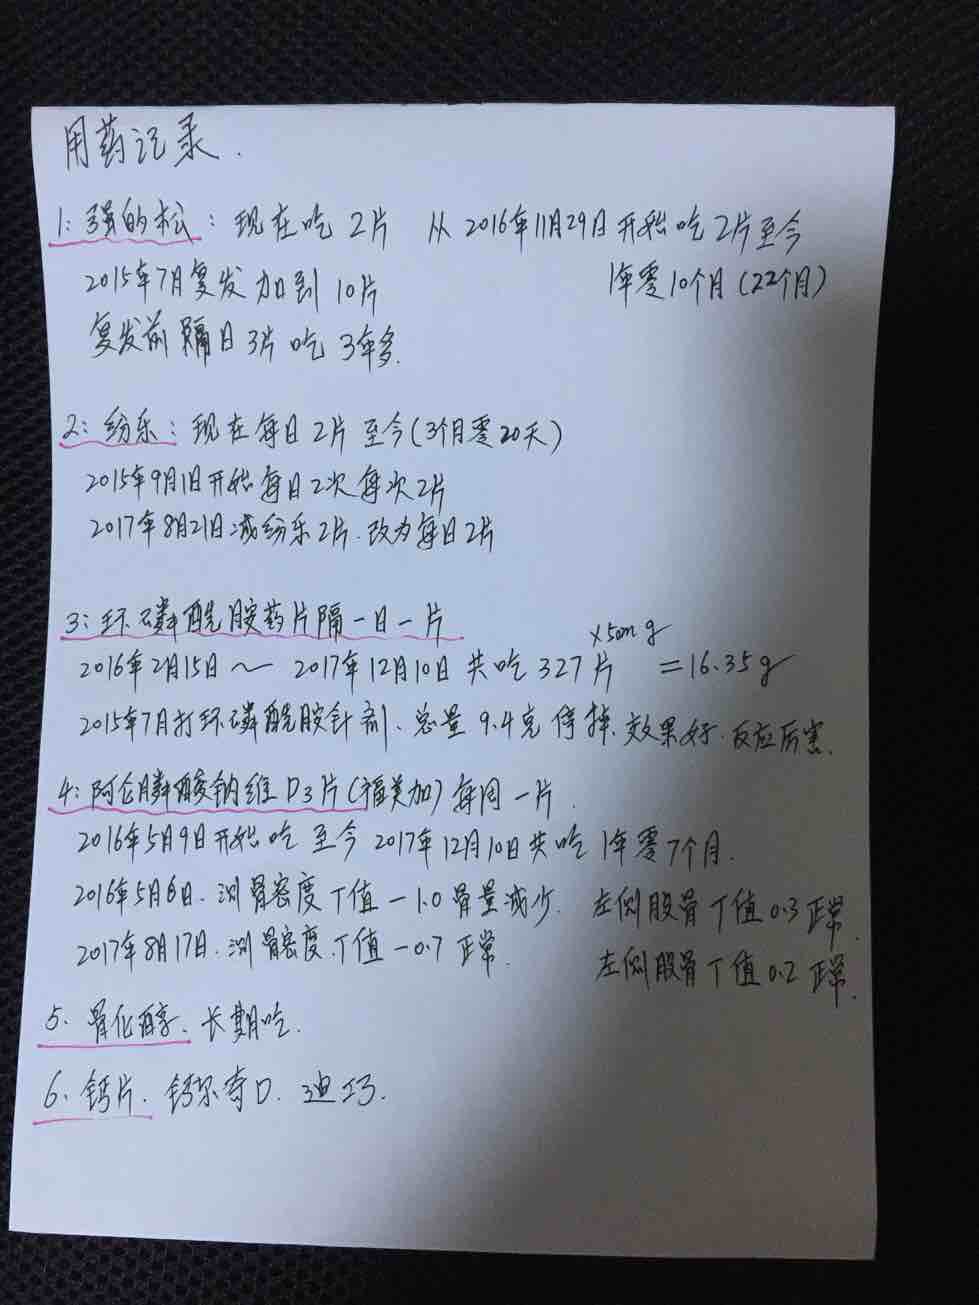 用药记录.
1: 强的松: 现在吃 2片 从 2016年11月29日开始吃 2片至今
2015年7月复发 加到 10片 1年零10个月(22个月)
复发前 隔日 3片 吃 3年多.
2: 纷乐: 现在每日 2片 至今(3个月零20天)
2015年9月1日开始每日2次 每次 2片
2017年8月21日减纷乐 2片. 改为每日2片
3: 环磷酰胺药片隔一日一片
×50mg
2016年2月15日～2017年12月10日 共吃 327片 =16.35g
2015年7月打环磷酰胺针剂. 总量 9.4克 停掉. 效果好. 反应厉害.
4: 阿仑膦酸钠维D3片(福美加) 每周一片.
2016年5月9日开始吃 至今 2017年12月10日共吃 1年零7个月.
2016年5月6日. 测骨密度 T值 -1.0 骨量减少. 左侧股骨 T值 0.3 正常.
2017年8月17日. 测骨密度. T值 -0.7 正常. 左侧股骨 T值 0.2 正常.
5. 骨化醇. 长期吃.
6. 钙片. 钙尔奇D. 迪巧.